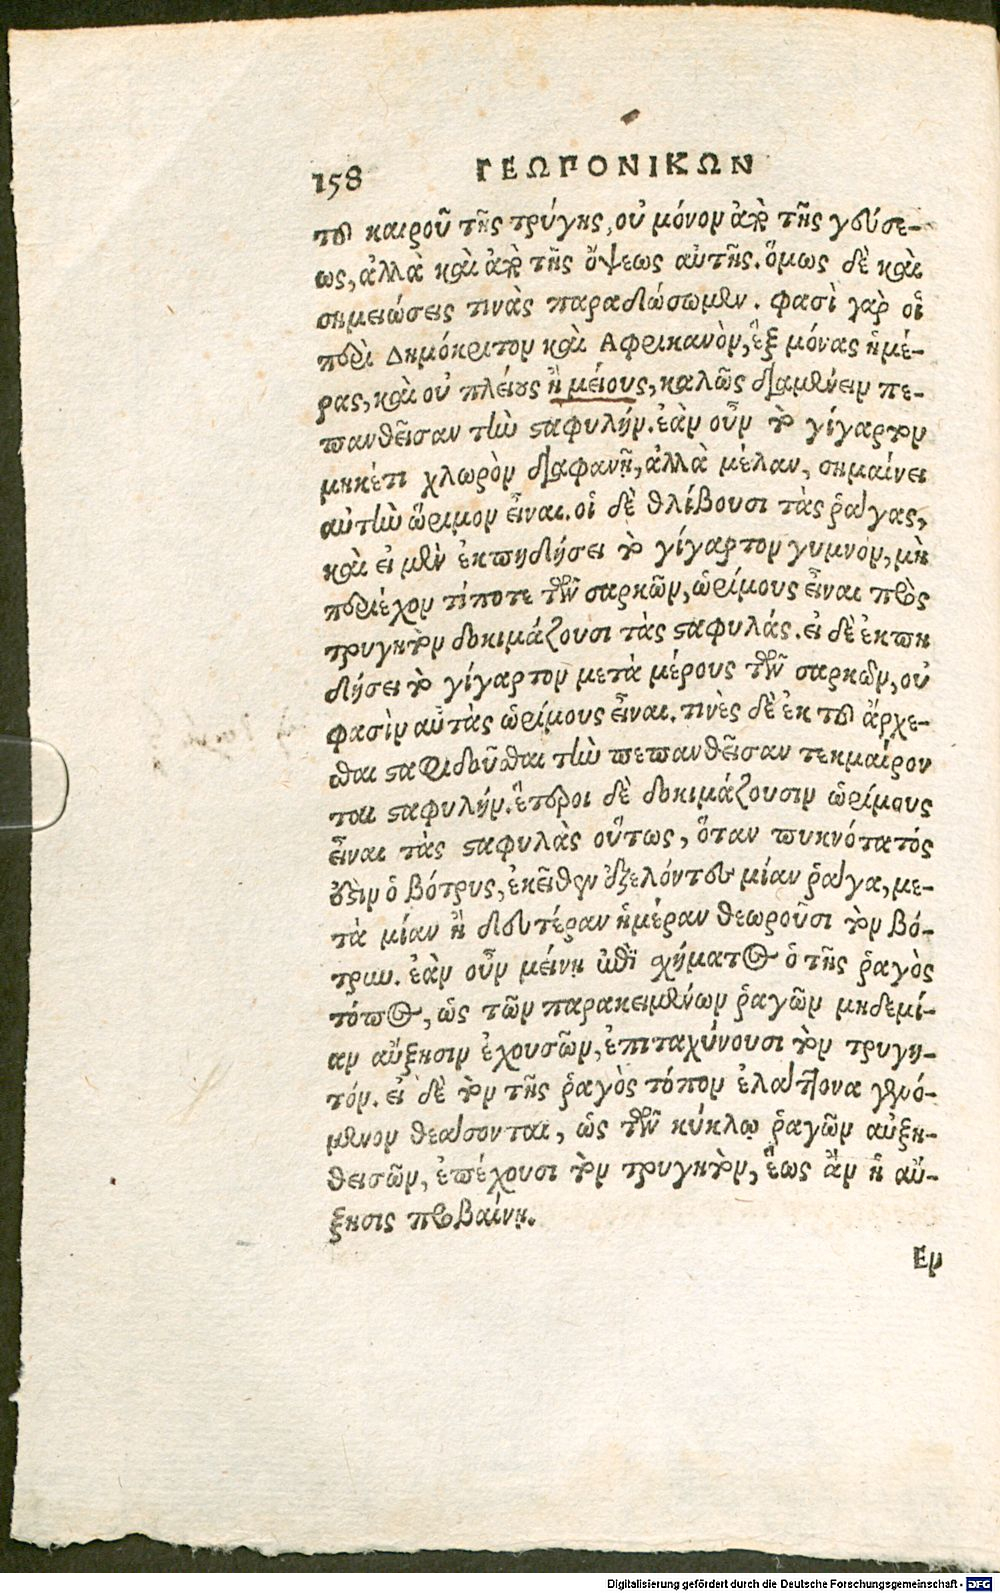 158 ΓΕΩΠΟΝΙΚΩΝ
τοῦ καιροῦ τῆς τρύγης, οὐ μόνον ἀπὸ τῆς γεύσε-
ως, ἀλλὰ καὶ ἀπὸ τῆς ὄψεως αὐτῆς. ὅμως δὲ καὶ
σημειώσεις τινὰς παραδώσωμεν. φασὶ γὰρ οἱ
περὶ Δημόκριτον καὶ Αφρικανὸν, ἓξ μόνας ἡμέ-
ρας, καὶ οὐ πλείους ἢ μείους, καλῶς διαμένειν πε-
πανθεῖσαν τὴν σαφυλήν. ἐὰν οὖν τὸ γίγαρτον
μηκέτι χλωρὸν διαφανῇ, ἀλλὰ μέλαν, σημαίνει
αὐτὴν ὥριμον εἶναι. οἱ δὲ θλίβουσι τὰς ῥᾶγας,
καὶ εἰ μὲν ἐκπηδήσει τὸ γίγαρτον γυμνὸν, μὴ
περιέχον τίποτε τῶν σαρκῶν, ὡρίμους εἶναι πρὸς
τρυγητὸν δοκιμάζουσι τὰς σταφυλάς. εἰ δὲ ἐκπη
δήσει τὸ γίγαρτον μετὰ μέρους τῶν σαρκῶν, οὐ
φασὶν αὐτὰς ὡρίμους εἶναι. τινὲς δὲ ἐκ τοῦ ἄρχε-
σθαι σταφιδοῦσθαι τὴν πεπανθεῖσαν τεκμαίρον
ται σταφυλήν. ἕτεροι δὲ δοκιμάζουσιν ὡρίμους
εἶναι τὰς σταφυλὰς οὕτως, ὅταν πυκνότατός
ἐστιν ὁ βότρυς, ἐκεῖθεν ἐξελόντες μίαν ῥᾶγα, με-
τὰ μίαν ἢ δευτέραν ἡμέραν θεωροῦσι τὸν βό-
τρυν. ἐὰν οὖν μείνῃ ἐπὶ σχήματος ὁ τῆς ῥαγὸς
τόπος, ὡς τῶν παρακειμένων ῥαγῶν μηδεμί-
αν αὔξησιν ἐχουσῶν, ἐπιταχύνουσι τὸν τρυγη-
τόν. εἰ δὲ τὸν τῆς ῥαγὸς τόπον ἐλάττονα γενό-
μενον θεάσονται, ὡς τῶν κύκλῳ ῥαγῶν αὐξη-
θεισῶν, ἐπέχουσι τὸν τρυγητὸν, ἕως ἂν ἡ αὔ-
ξησις προβαίνῃ.
Εν
Digitalisierung gefördert durch die Deutsche Forschungsgemeinschaft - DFG